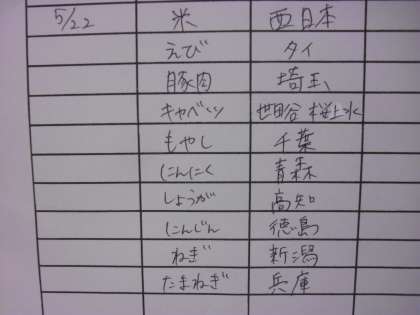 5/22 米 西日本
えび タイ
豚肉 埼玉
キャベツ 世田谷 桜上水
もやし 千葉
にんにく 青森
しょうが 高知
にんじん 徳島
ねぎ 新潟
たまねぎ 兵庫